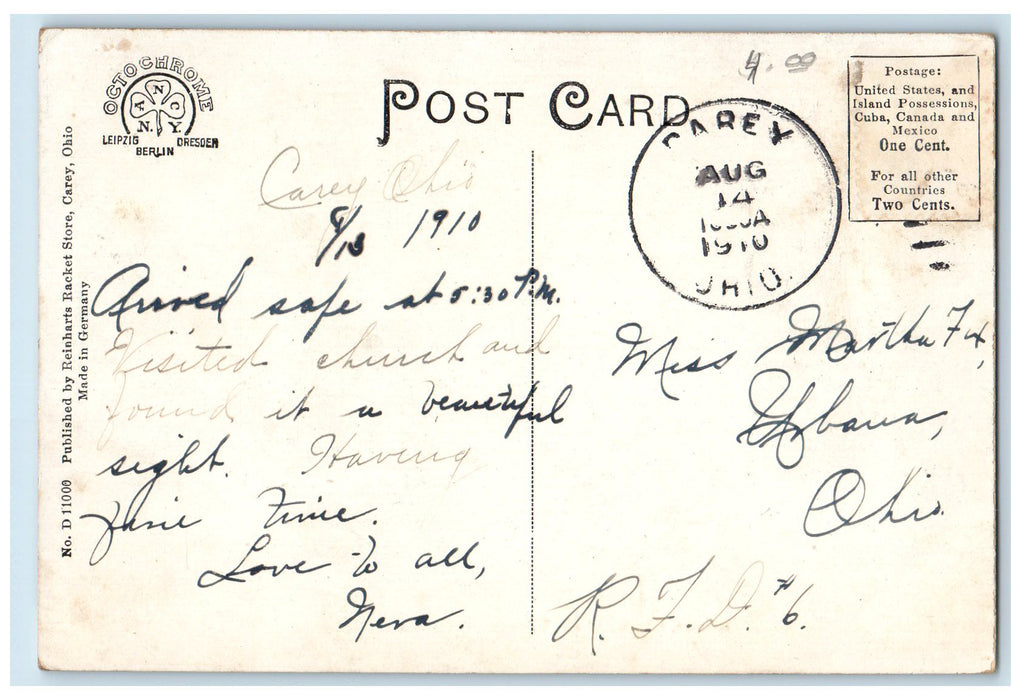 OCTOCHROME
ANC
N.Y.
LEIPZIG DRESDEN
BERLIN
POST CARD
4.00
Postage:
United States, and
Island Possessions,
Cuba, Canada and
Mexico
One Cent.
For all other
Countries
Two Cents.
CAREY
AUG
14
1910
OHIO.
No. D 11000 Published by Reinharts Racket Store, Carey, Ohio
Made in Germany
Carey Ohio
8/13 1910
Arrived safe at 5:30 P.M.
Visited church and
found it a beautiful
sight. Having
fine time.
Love to all,
Neva.
Miss Martha Fox,
Urbana,
Ohio.
R. F. D. #6.